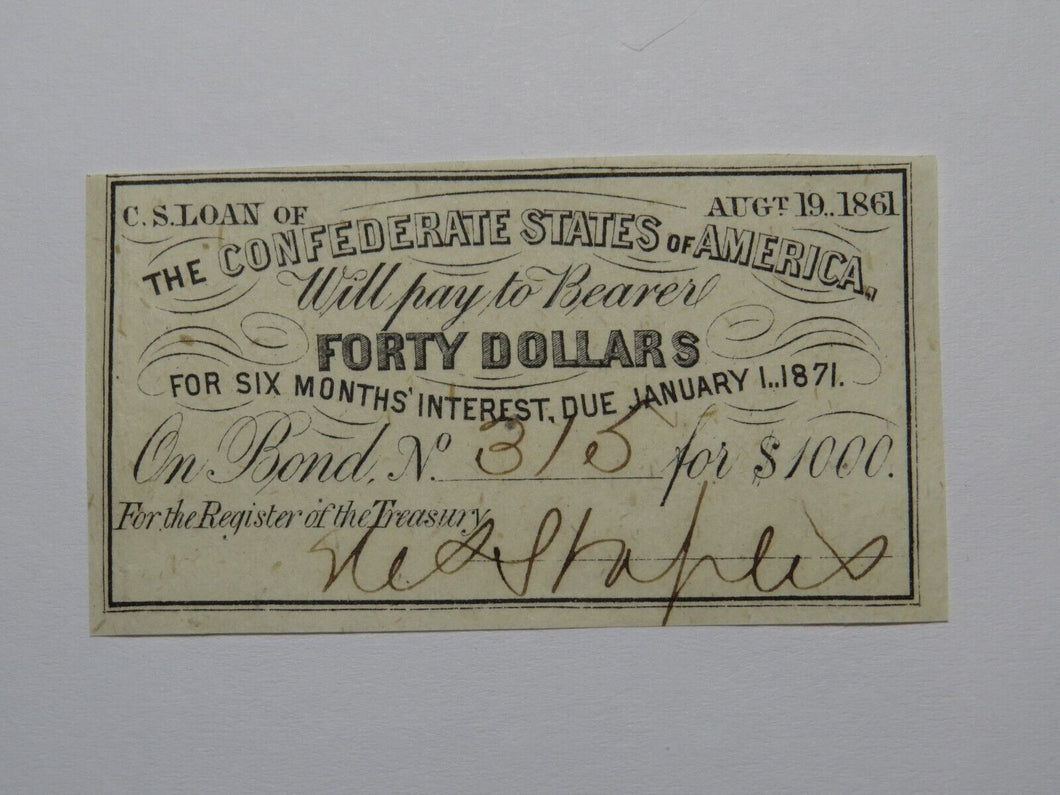 C.S. LOAN OF AUGT 19.. 1861
THE CONFEDERATE STATES OF AMERICA.,
Will pay to Bearer
FORTY DOLLARS
FOR SIX MONTHS' INTEREST, DUE JANUARY 1..1871.
On Bond, No. 315 for $1000.
For the Register of the Treasury
Staples